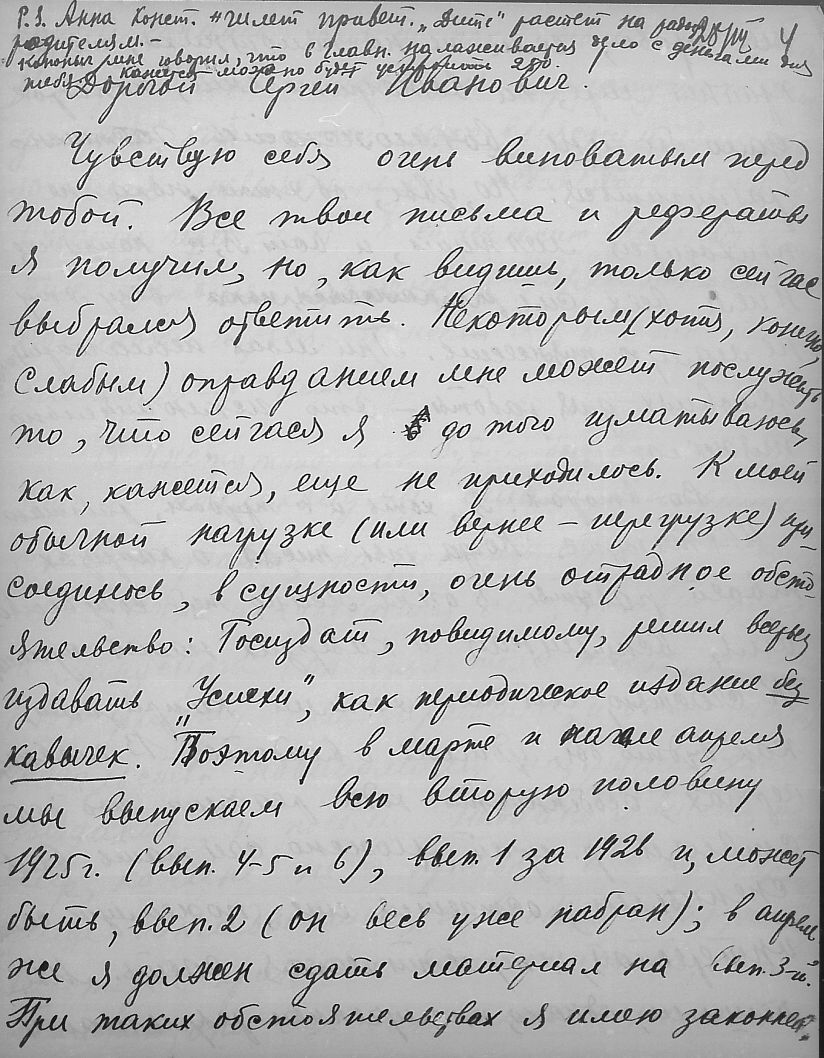 P.S. Анна Конст. шлет привет. „Дитё" растет на радость 4
родителям. –
мне говорил, что в главн. налаживается дело с деньгами для
тебя. Кажется можно будет 250.
Дорогой Сергей Иванович.
Чувствую себя очень виноватым перед
тобой. Все твои письма и рефераты
я получил, но, как видишь, только сейчас
выбрался ответить. Некоторым (хотя, конечно,
слабым) оправданием мне может послужить
то, что сейчася я до того изматываюсь,
как, кажется, еще не приходилось. К моей
обычной нагрузке (или вернее – перегрузке) при-
соединось, в сущности, очень отрадное обсто-
ятельство: Госиздат, повидимому, решил всерьез
издавать „Успехи", как периодическое издание без
кавычек. Поэтому в марте и начале апреля
мы выпускаем всю вторую половину
1925 г. (вып. 4-5 и 6), вып. 1 за 1926 и, может
быть, вып. 2 (он весь уже набран); в апреле
же я должен сдать материал на вып. 3-й.
При таких обстоятельствах я имею законное